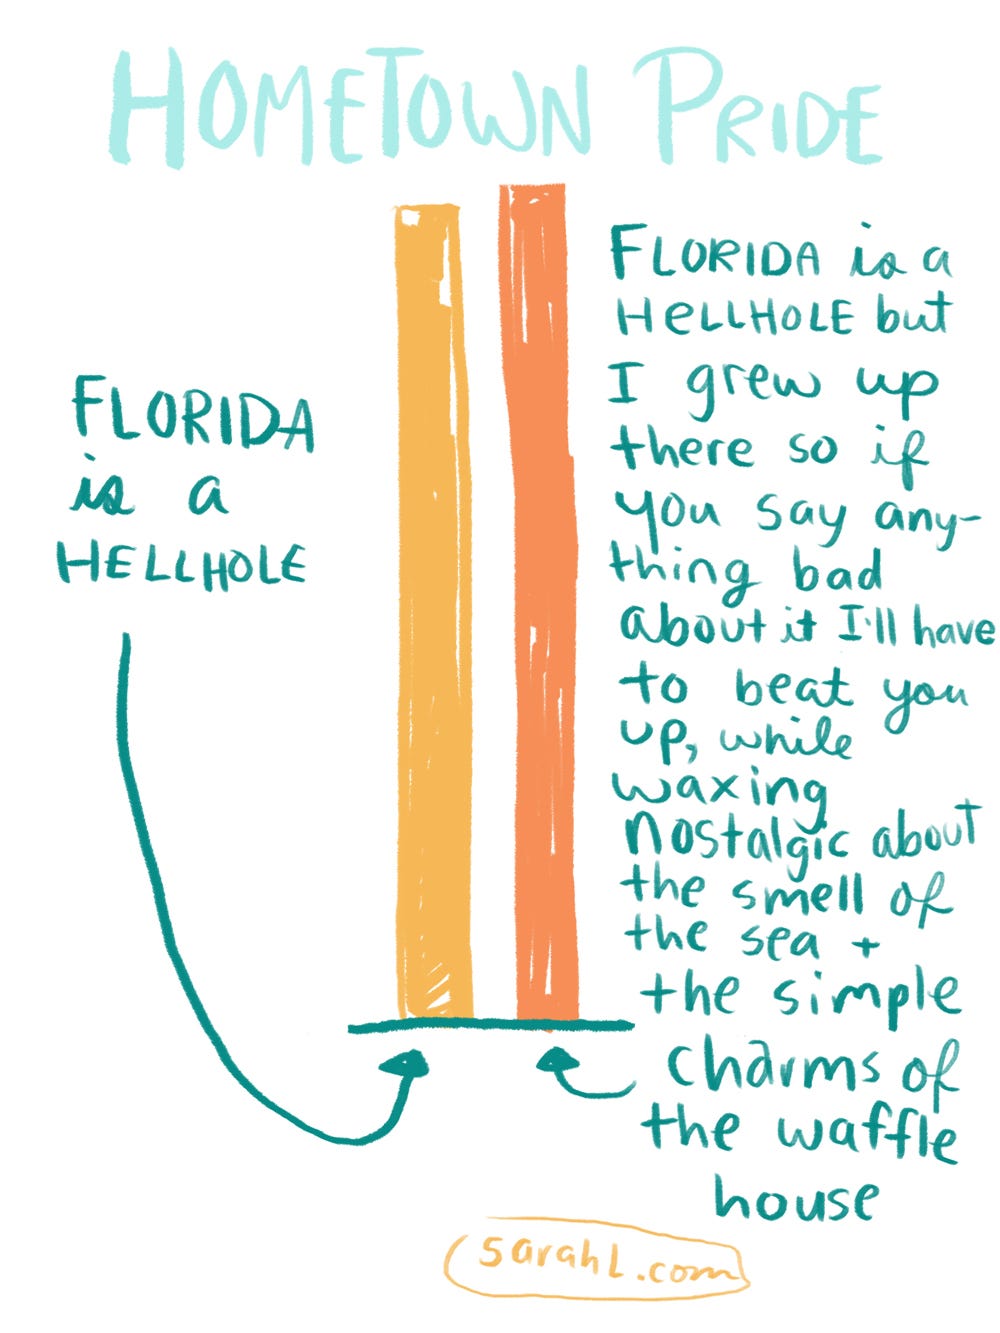 HOMETOWN PRIDE
FLORIDA
is a
HELLHOLE
FLORIDA is a
HELLHOLE but
I grew up
there so if
you say any-
thing bad
about it I'll have
to beat you
up, while
waxing
nostalgic about
the smell of
the sea +
the simple
charms of
the waffle
house
sarahl.com